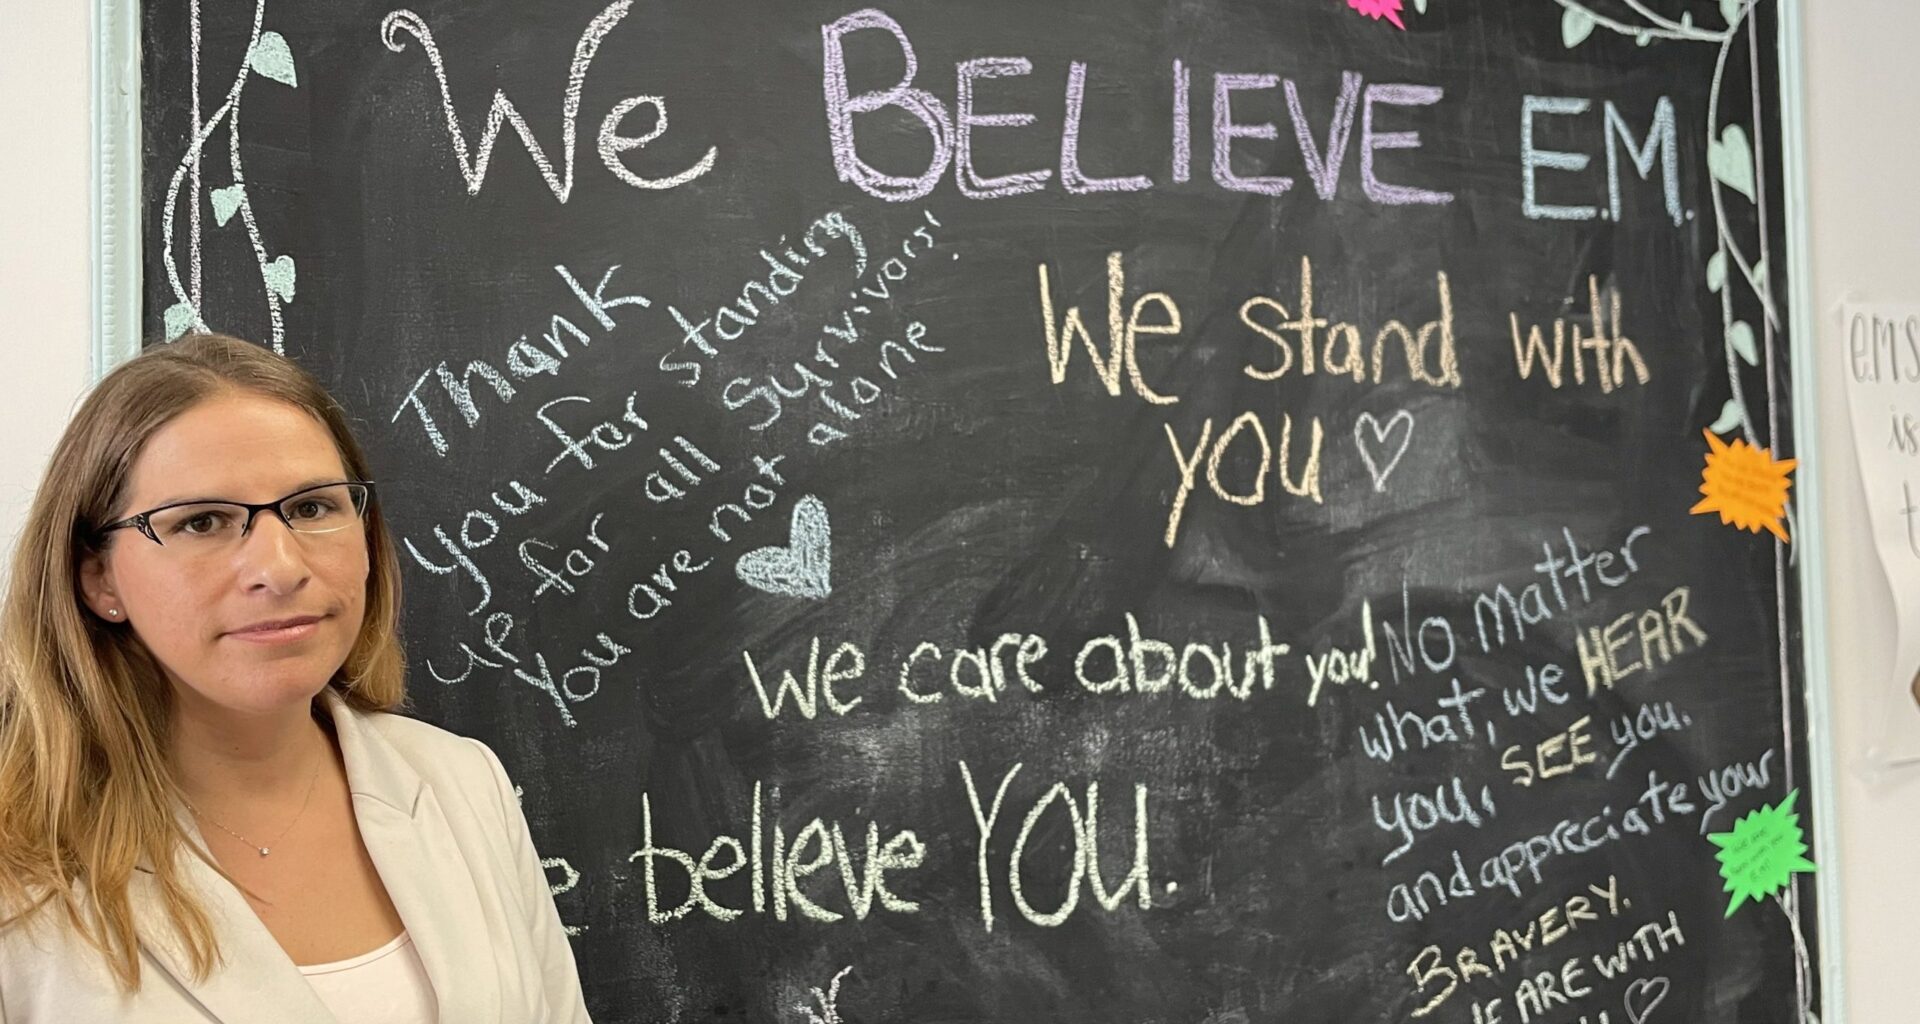 We BELIEVE E.M.
Thank
you for standing
up for all survivors!
You are not alone
We stand with
you
We care about you!
No matter
what, we HEAR
you, SEE you.
and appreciate your
BRAVERY.
ARE WITH
believe YOU.
e.m's
is